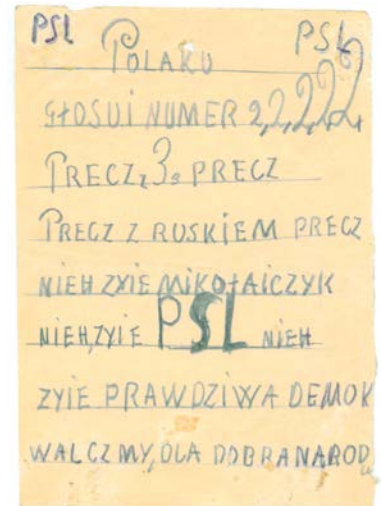 PSL PSL
POLAKU
GŁOSUI NUMER 2,2,2,2,2
PRECZ, 3, PRECZ
PRECZ Z RUSKIEM PRECZ
NIEH ZYIE MIKOŁAICZYK
NIEH, ZYIE PSL NIEH
ZYIE PRAWDZIWA DEMOK
WALCZMY, DLA DOBRA NAROD